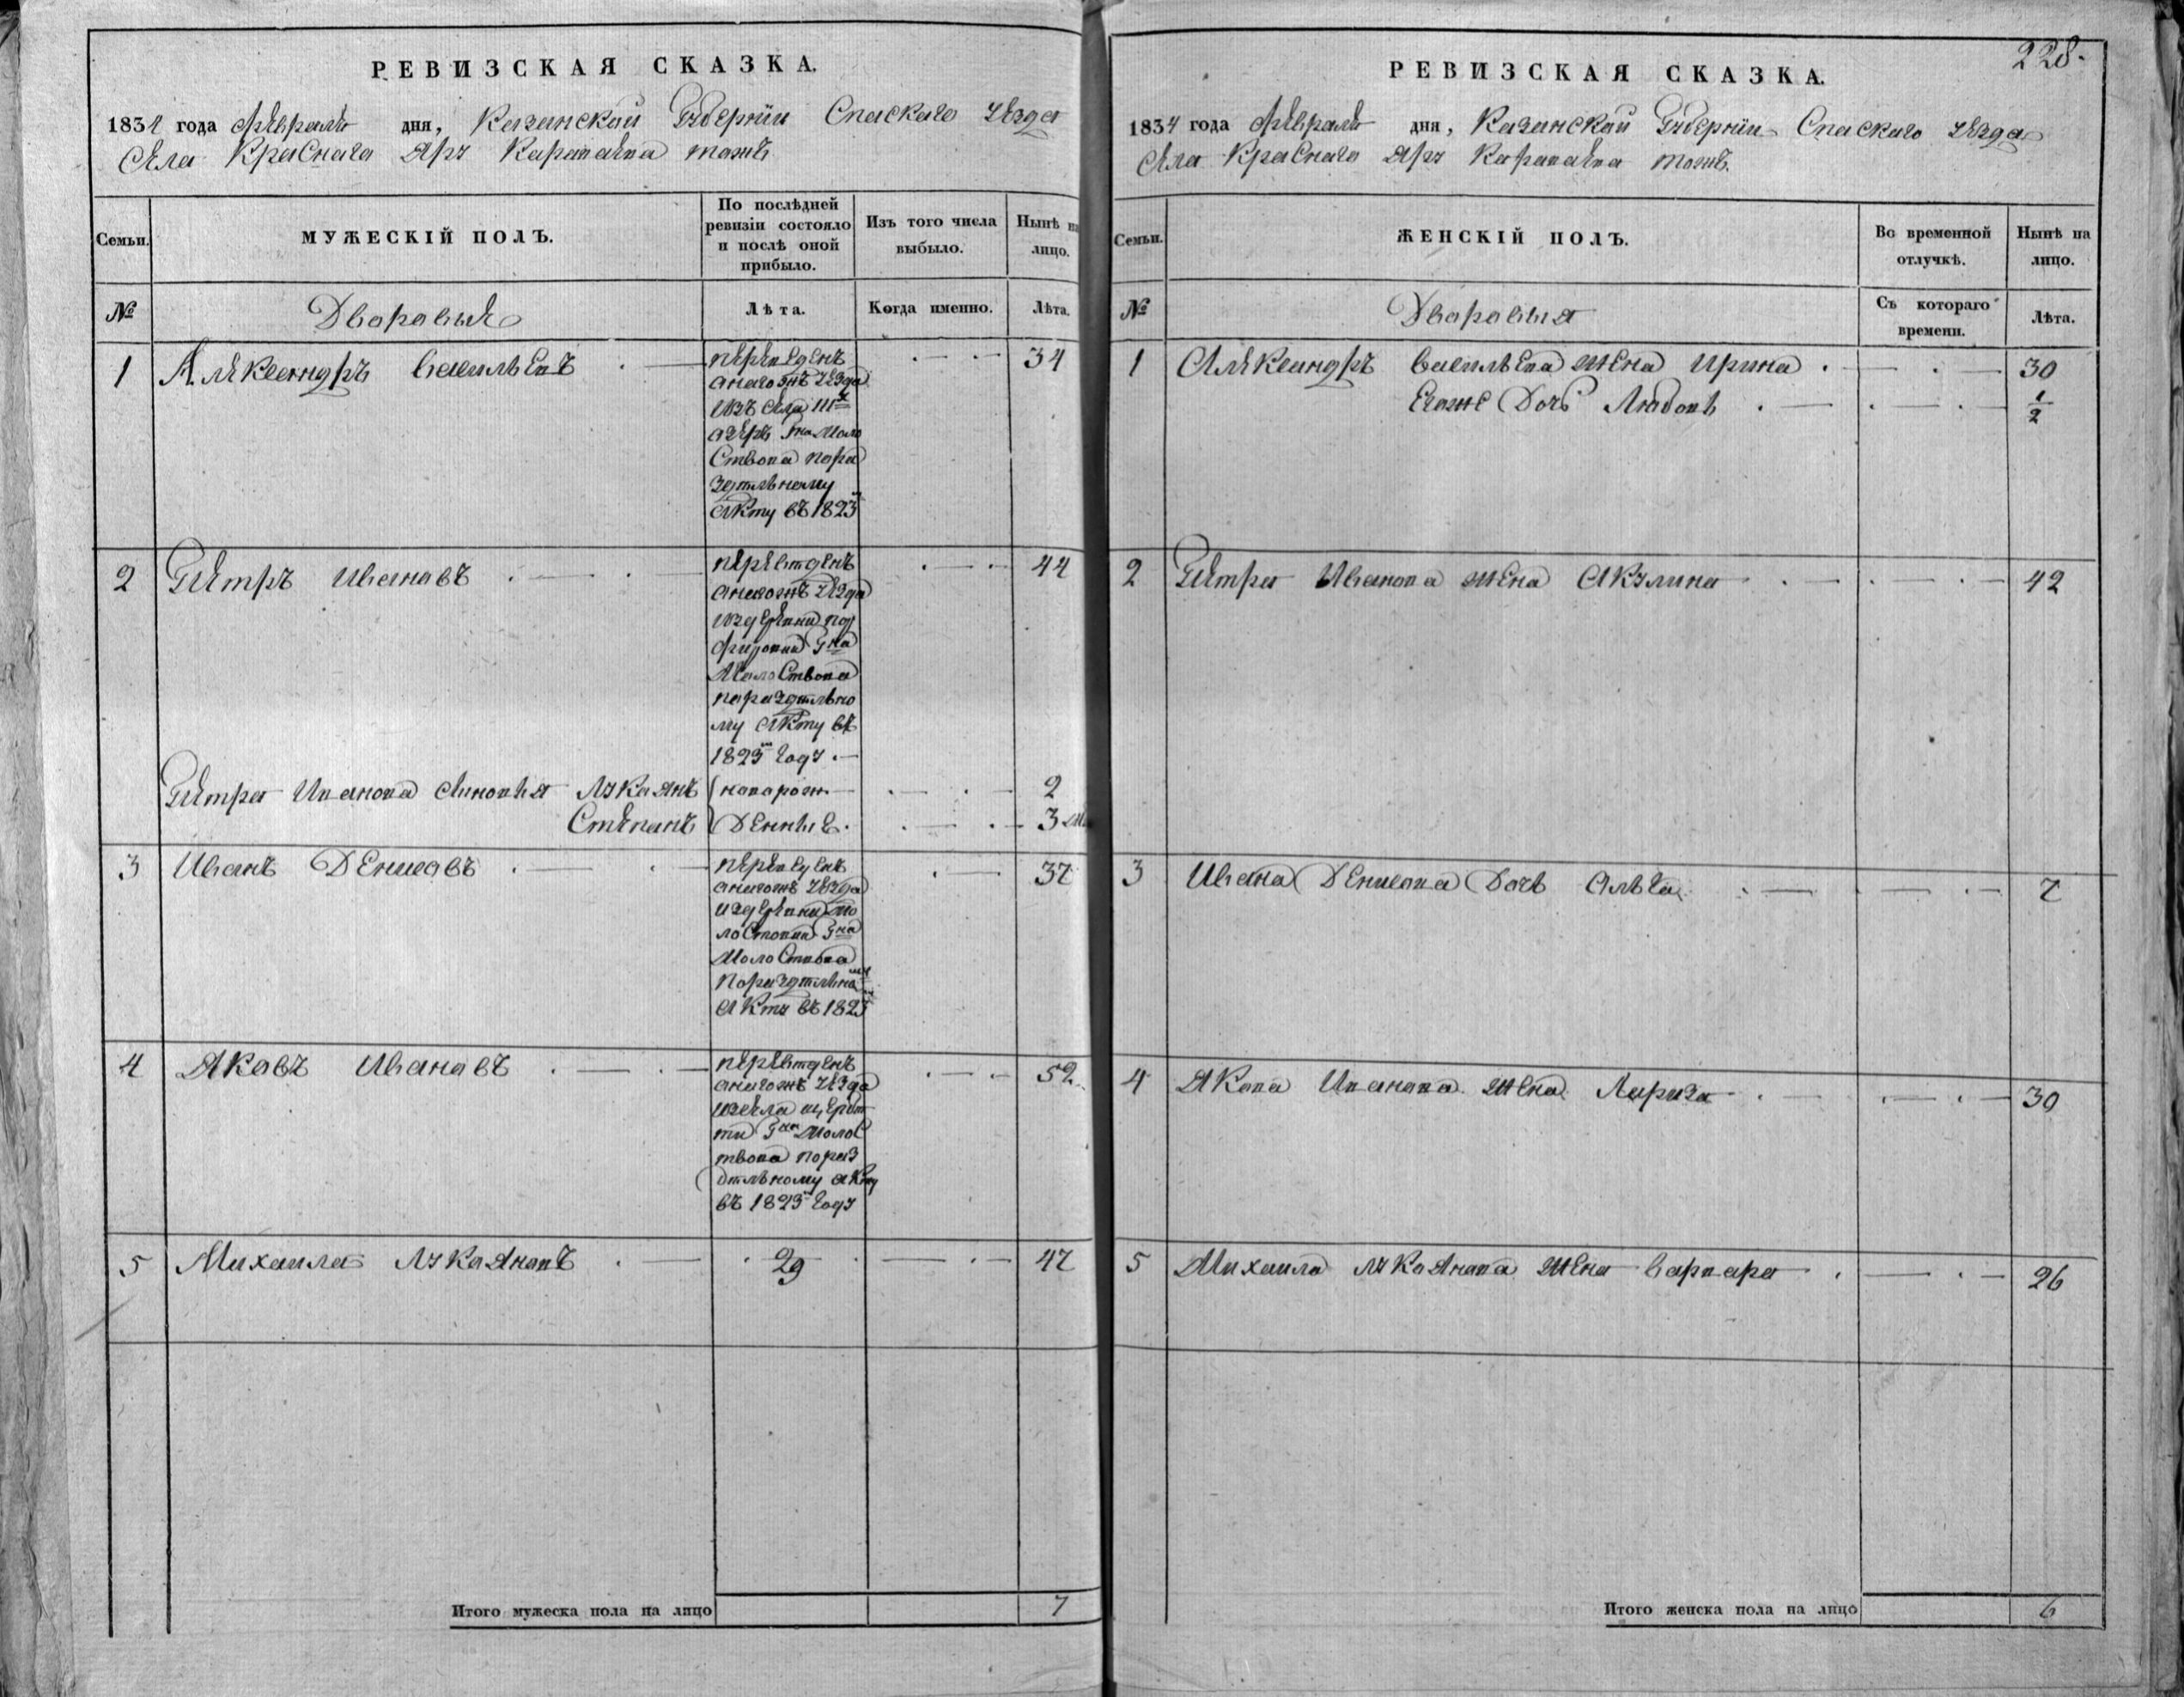 РЕВИЗСКАЯ СКАЗКА.
1834 года февраля дня, Казанской Губернии Спаскаго уезда
Села Краснаго Яру Каратаева тожъ
Семьи.
МУЖЕСКІЙ ПОЛЪ.
По послѣдней ревизіи состояло и послѣ оной прибыло.
Изъ того числа выбыло.
Нынѣ на лицо.
№
Дворовыя
Лѣта.
Когда именно.
Лѣта.
1 Александръ Васильевъ
переведенъ
уезда
изъ села
Гна Моло
ствова пораз
дельному
Акту въ 1823
34
2 Петръ Ивановъ
переведенъ
уезда
Гна
Молоствова
поразделно
му Акту въ
1823м году
44
Петра Иванова сыновья Лукаянъ
новорож
2
Степанъ
денные
3
3 Иванъ Денисовъ
переведенъ
уезда
из деревни Мо
лостовки Гна
Молоствова
поразделном
Акту въ 1823
37
4 Яковъ Ивановъ
переведенъ
уезда
изсела
Гна Молос
твова пораз
дельному Акту
въ 1823 году
52
5 Михаила Лукаяновъ
29
47
Итого мужеска пола на лицо
7
228.
РЕВИЗСКАЯ СКАЗКА.
1834 года февраля дня, Казанской Губернии Спаскаго уезда
Села Краснаго Яру Каратаева тожъ.
Семьи.
ЖЕНСКІЙ ПОЛЪ.
Во временной отлучкѣ.
Нынѣ на лицо.
№
Дворовыя
Съ котораго времени.
Лѣта.
1 Александръ Васильева жена Ирина
30
Егоже Дочь Любовь
1/2
2 Петра Иванова жена Акулина
42
3 Ивана Денисова Дочь Ольга
7
4 Якова Иванова жена Лариза
30
5 Михаила Лукоянова жена Варвара
26
Итого женска пола на лицо
6